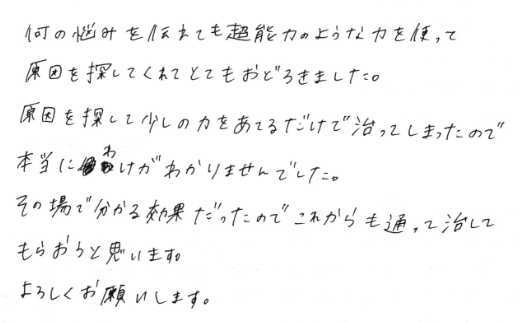 何の悩みを伝えても超能力のような力を使って
原因を探してくれてとてもおどろきました。
原因を探して少しの力をあてるだけで治ってしまったので
本当にわけがわかりませんでした。
その場で分かる効果だったのでこれからも通って治して
もらおうと思います。
よろしくお願いします。